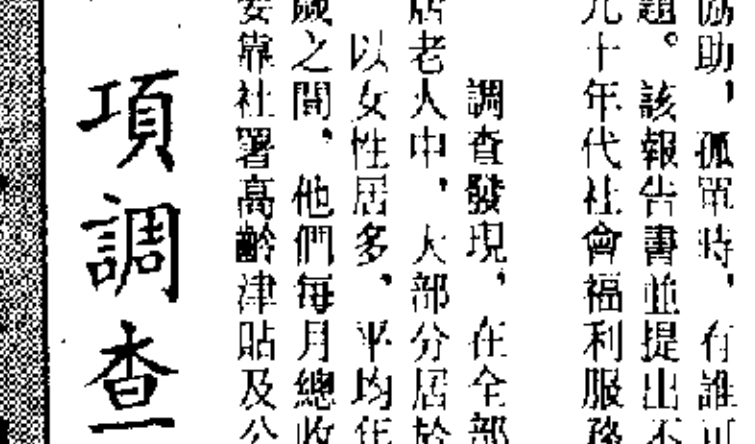 協助，孤單時，有誰可
題。該報告書並提出不
九十年代社會福利服務
調查發現，在全部
居老人中，大部分居於
以女性居多，平均年
歲之間，他們每月總收
要靠社署高齡津貼及公
項調查